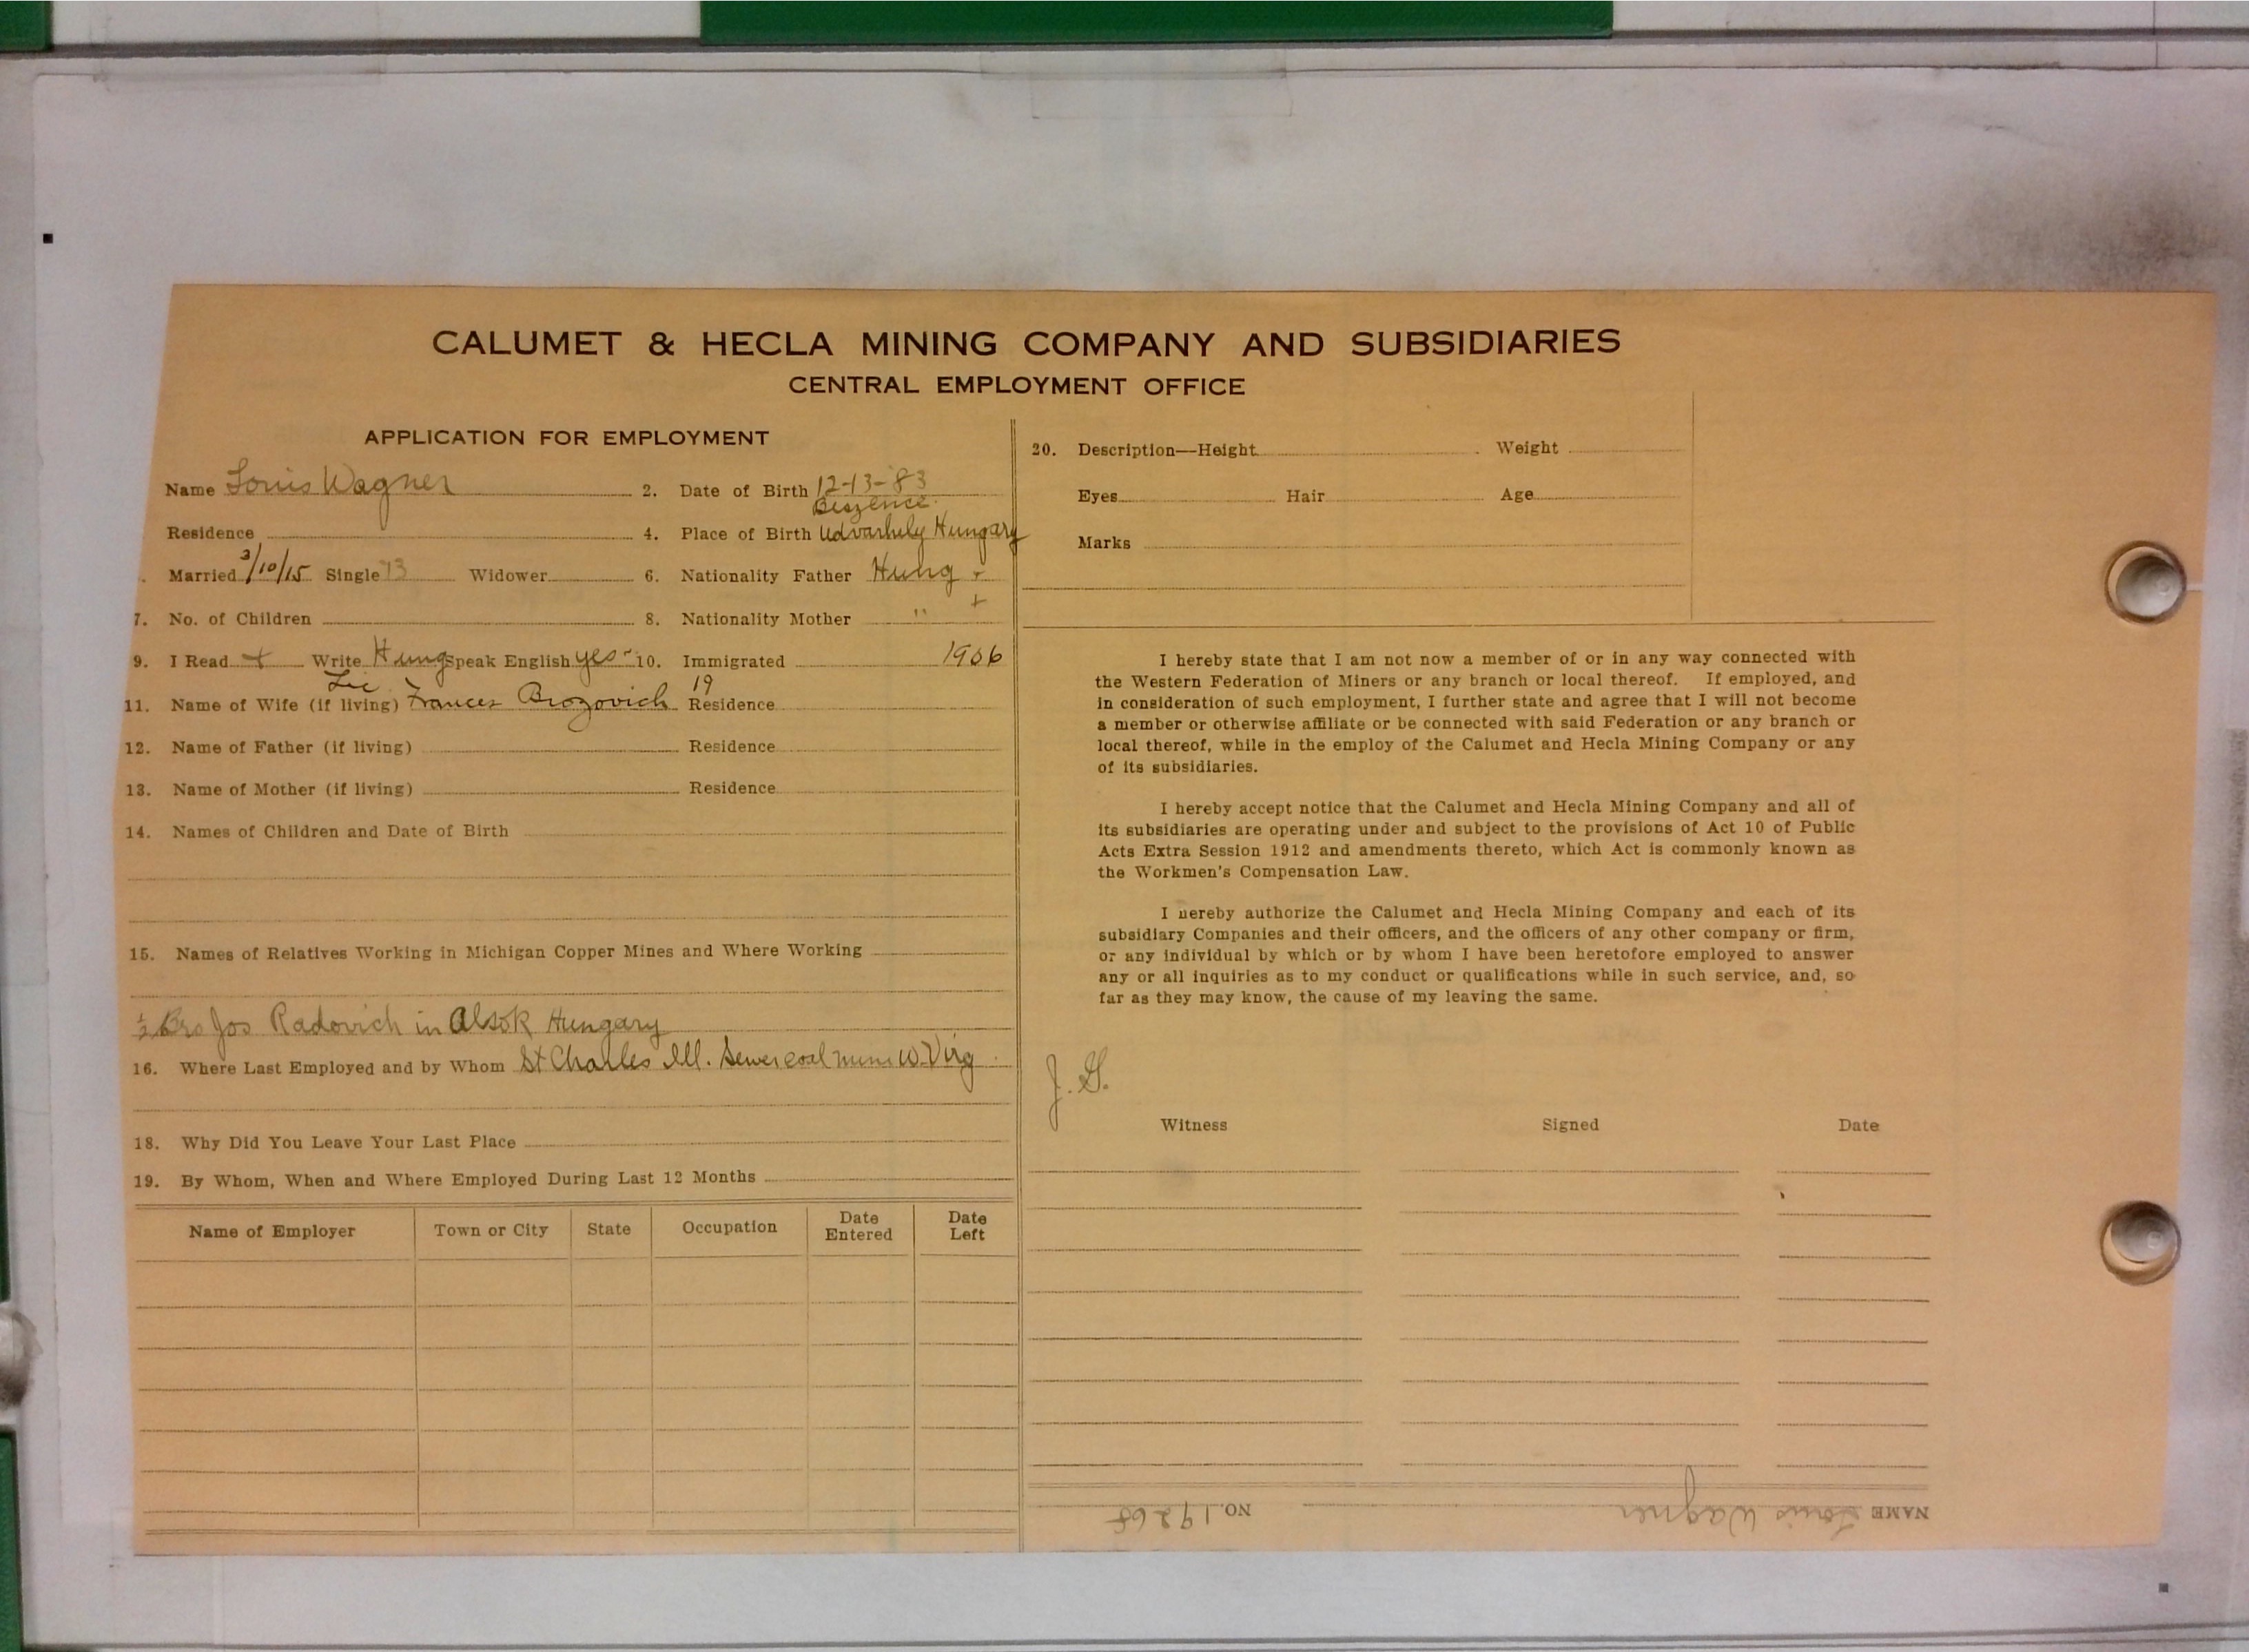 CALUMET & HECLA MINING COMPANY AND SUBSIDIARIES
CENTRAL EMPLOYMENT OFFICE
APPLICATION FOR EMPLOYMENT
Name Louis Wagner 2. Date of Birth 12-13-83
Residence 4. Place of Birth Udvarhely Hungary
Married 3/10/15 Single 13 Widower 6. Nationality Father Hung +
7. No. of Children 8. Nationality Mother " +
9. I Read + Write Hung Speak English yes- 10. Immigrated 1906
Lic 19
11. Name of Wife (if living) Frances Brozovich Residence
12. Name of Father (if living) Residence
13. Name of Mother (if living) Residence
14. Names of Children and Date of Birth
15. Names of Relatives Working in Michigan Copper Mines and Where Working
½ Bro Jos Radovich in Alsok Hungary
16. Where Last Employed and by Whom St Charles Ill. Sewer coal mine W. Virg
18. Why Did You Leave Your Last Place
19. By Whom, When and Where Employed During Last 12 Months
Name of Employer Town or City State Occupation Date Entered Date Left
20. Description—Height Weight
Eyes Hair Age
Marks
I hereby state that I am not now a member of or in any way connected with
the Western Federation of Miners or any branch or local thereof. If employed, and
in consideration of such employment, I further state and agree that I will not become
a member or otherwise affiliate or be connected with said Federation or any branch or
local thereof, while in the employ of the Calumet and Hecla Mining Company or any
of its subsidiaries.
I hereby accept notice that the Calumet and Hecla Mining Company and all of
its subsidiaries are operating under and subject to the provisions of Act 10 of Public
Acts Extra Session 1912 and amendments thereto, which Act is commonly known as
the Workmen's Compensation Law.
I hereby authorize the Calumet and Hecla Mining Company and each of its
subsidiary Companies and their officers, and the officers of any other company or firm,
or any individual by which or by whom I have been heretofore employed to answer
any or all inquiries as to my conduct or qualifications while in such service, and, so
far as they may know, the cause of my leaving the same.
J. G.
Witness Signed Date
NAME Louis Wagner NO. 19268